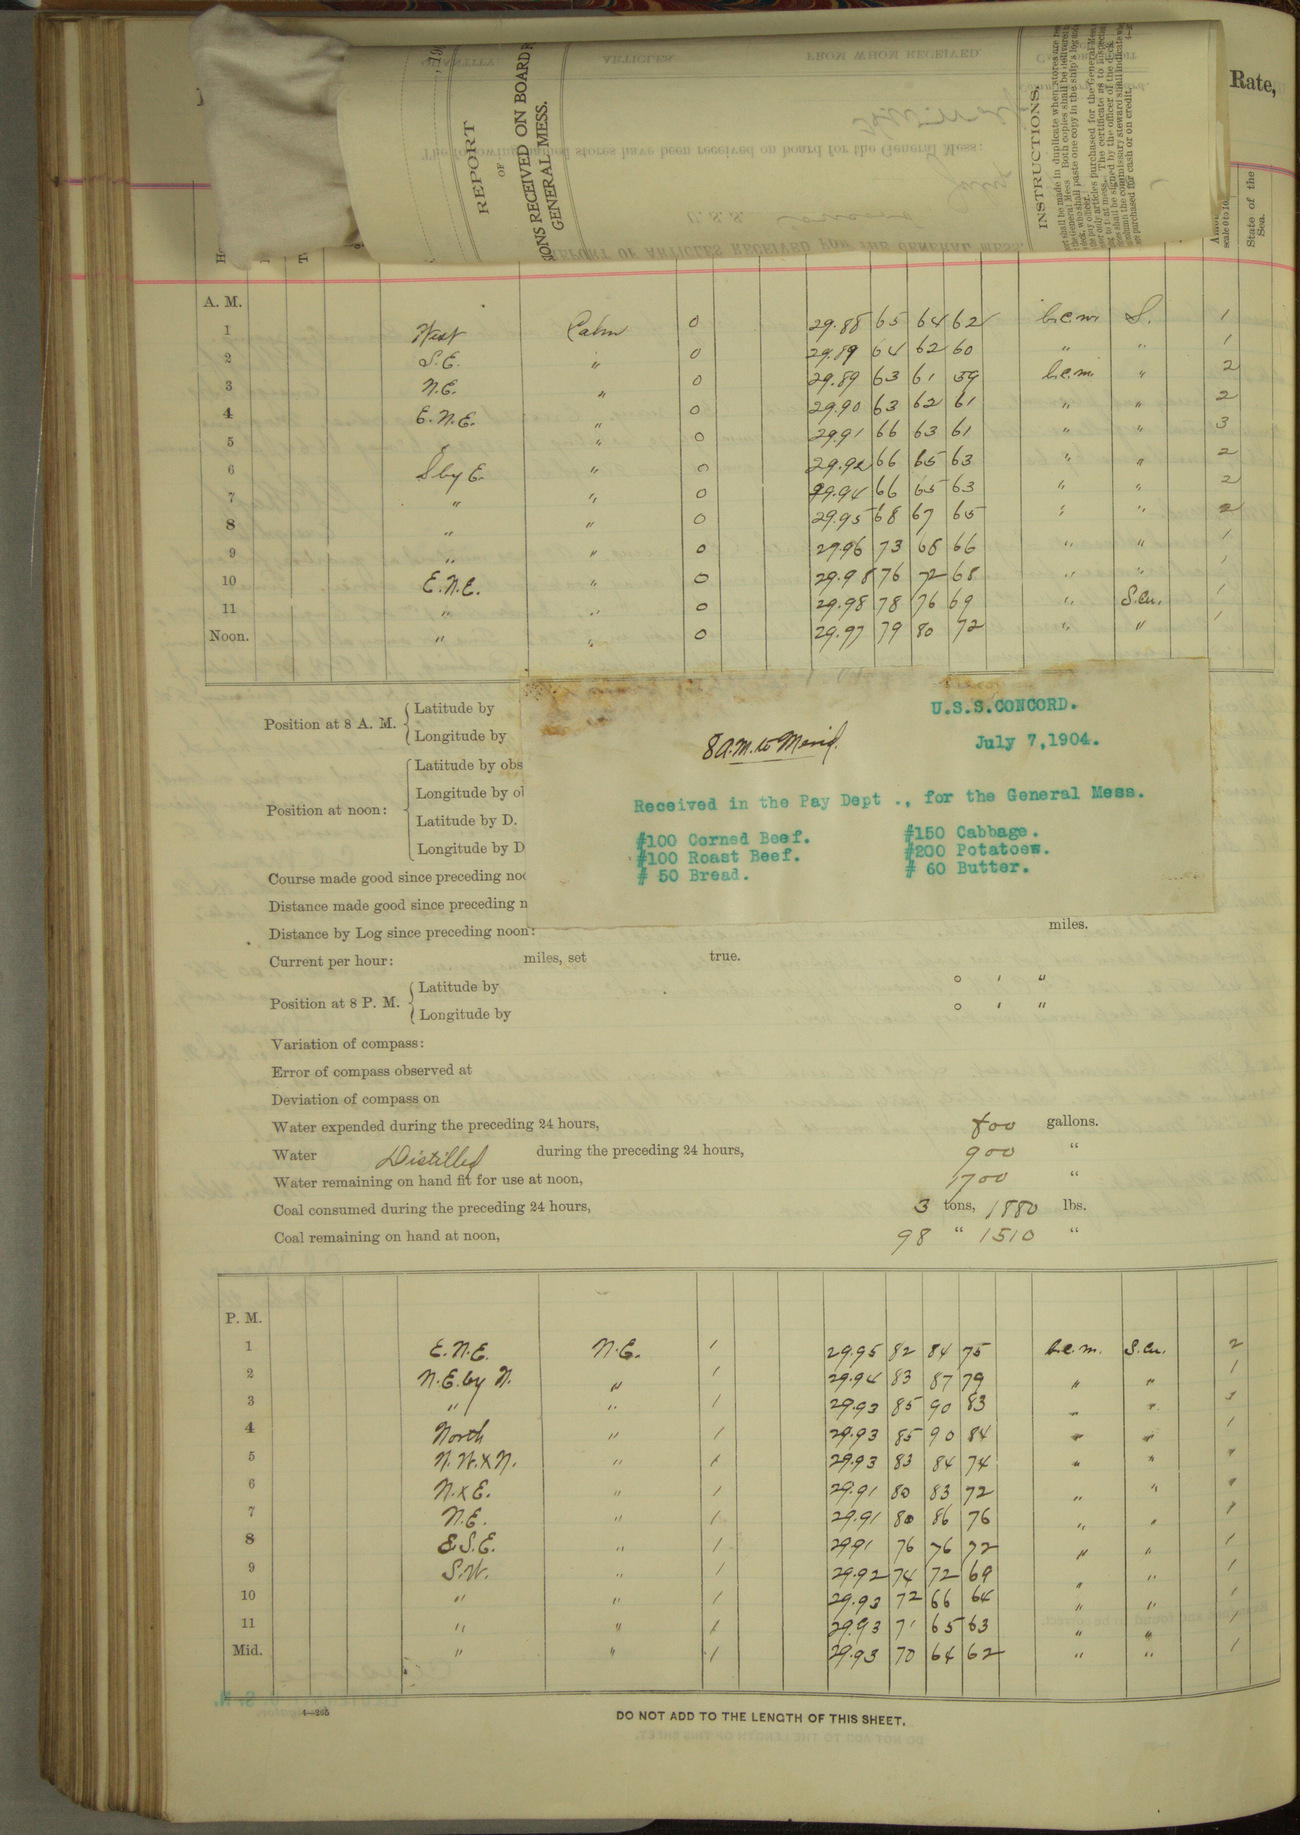 Rate,
REPORT
OF
IONS RECEIVED ON BOARD F
GENERAL MESS.
INSTRUCTIONS.
State of the
Sea.
A. M.
1 West Calm 0 29.88 65 64 62 b.c.m. S. 1
2 S.E. " 0 29.89 64 62 60 " " 1
3 N.E. " 0 29.89 63 61 59 b.c.m. " 2
4 E.N.E. " 0 29.90 63 62 61 " " 2
5 " 0 29.91 66 63 61 " " 3
6 S by E. " 0 29.92 66 65 63 " " 2
7 " " 0 29.94 66 65 63 " " 2
8 " " 0 29.95 68 67 65 " " 2
9 " " 0 2996 73 68 66 " " 1
10 E.N.E. " 0 29.98 76 72 68 " " 1
11 " " 0 29.98 78 76 69 " S.Cu. 1
Noon. " " 0 29.97 79 80 72 " " 1
U.S.S.CONCORD.
July 7,1904.
8 A.M. to Merid.
Received in the Pay Dept ., for the General Mess.
#100 Corned Beef. #150 Cabbage.
#100 Roast Beef. #200 Potatoes.
# 50 Bread. # 60 Butter.
Position at 8 A. M. { Latitude by
Longitude by
Position at noon: { Latitude by obs
Longitude by ol
Latitude by D.
Longitude by D
Course made good since preceding noo
Distance made good since preceding n
Distance by Log since preceding noon: miles.
Current per hour: miles, set true.
Position at 8 P. M. { Latitude by ° ' "
Longitude by ° ' "
Variation of compass:
Error of compass observed at
Deviation of compass on
Water expended during the preceding 24 hours, 800 gallons.
Water Distilled during the preceding 24 hours, 900 "
Water remaining on hand fit for use at noon, 1700 "
Coal consumed during the preceding 24 hours, 3 tons, 1880 lbs.
Coal remaining on hand at noon, 98 " 1510 "
P. M.
1 E.N.E. N.E. 1 29.95 82 84 75 b.c.m. S.Cu. 2
2 N.E. by N. " 1 29.94 83 87 79 " " 1
3 " " 1 29.93 85 90 83 " "
4 North " 1 29.93 85 90 84 " " 1
5 N.W.xN. " 1 29.93 83 84 74 " " "
6 N.xE. " 1 29.91 80 83 72 " " "
7 N.E. " 1 29.91 80 86 76 " " 1
8 E.S.E. " 1 2991 76 76 72 " " 1
9 S.W. " 1 29.92 74 72 69 " " 1
10 " " 1 29.93 72 66 64 " " 1
11 " " 1 29.93 71 65 63 " " 1
Mid. " " 1 29.93 70 64 62 " " 1
4—265
DO NOT ADD TO THE LENGTH OF THIS SHEET.